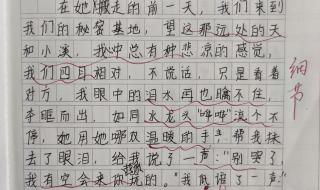 在她搬走的前一天，我们来到
我们的秘密基地，望这那远处的天
和小溪，我心中总有种悲凉的感觉，
我们四目相对，不说话，只是看着
对方，我眼中的泪水再也瞒不住，
夺眶而出，如同水龙头"哗哗"流个不
停，她用她那双温暖的手，帮我抹
去了眼泪，给我说了一声："别哭了，
我有空会来找你玩的。"我低语了一声：
细节